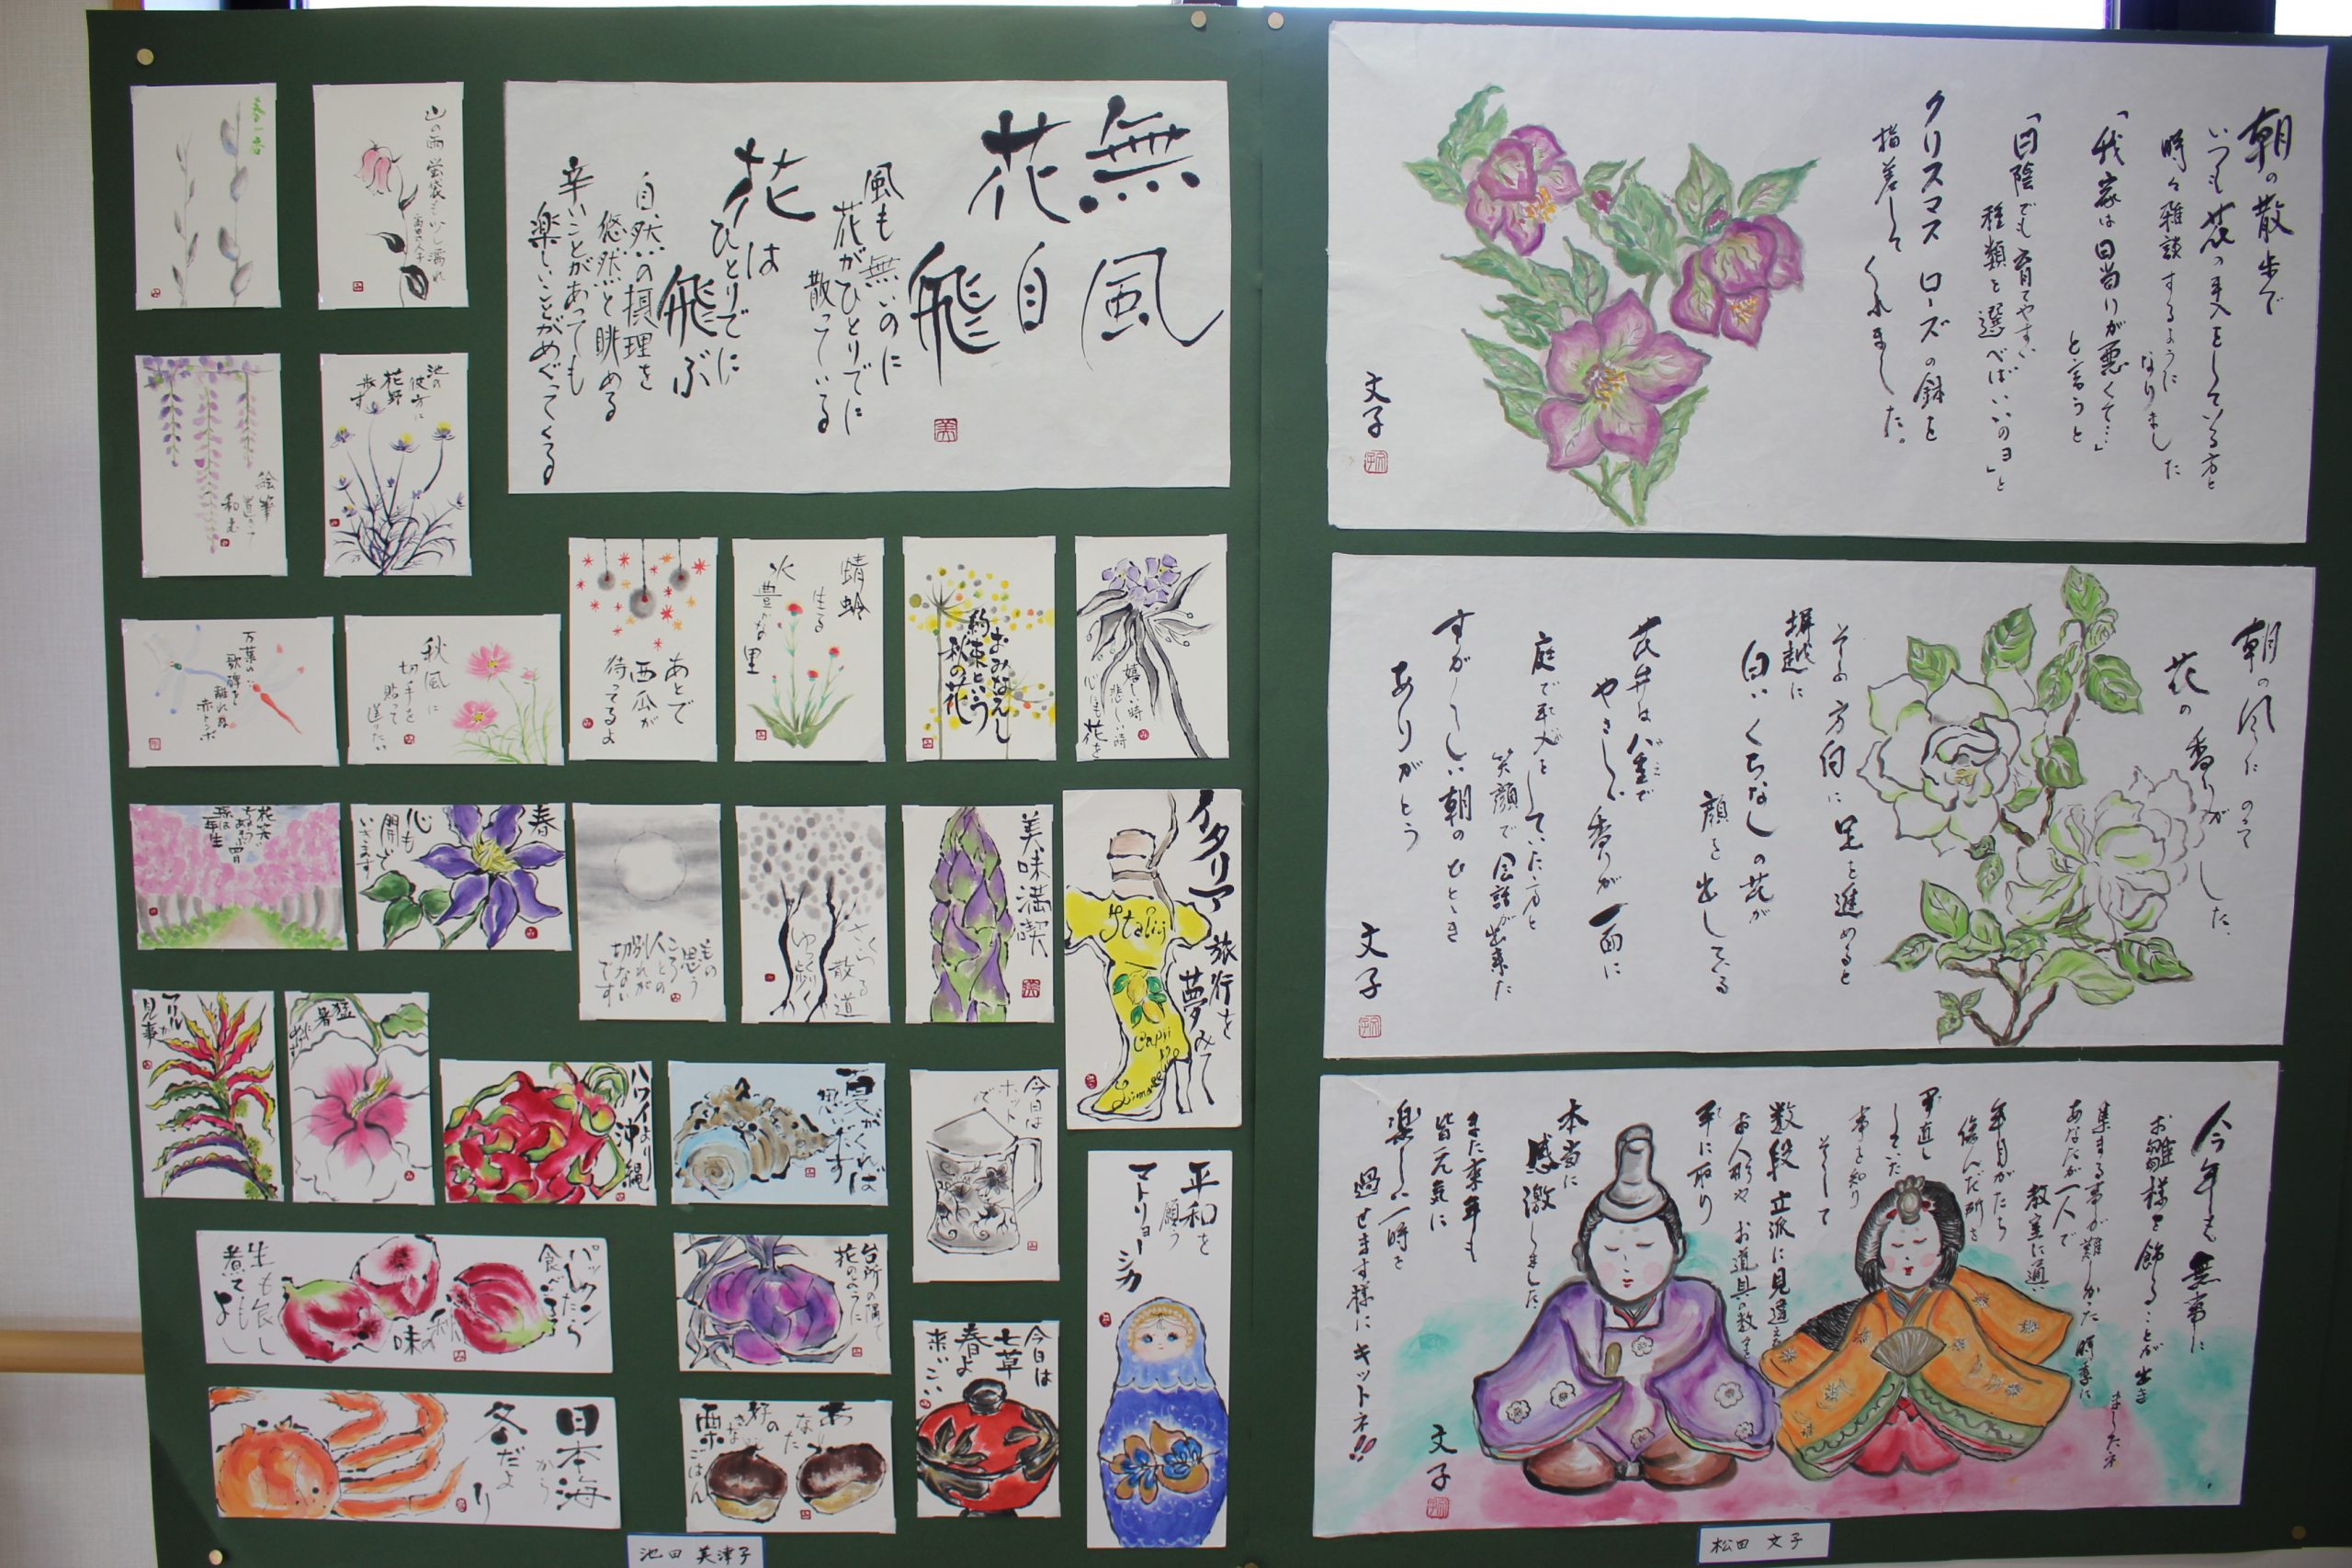 無風
花自飛
風も無いのに
花がひとりでに
散っている
花は
ひとりでに
飛ぶ
自然の摂理を
悠然と眺める
辛いことがあっても
楽しいことがめぐってくる
山の雨蛍袋も少し濡れ
池の
彼方に
花野
絵筆
和む
万葉の
歌碑を
離れぬ
赤トンボ
秋風に
切手を
貼って
送りたい
あとで
西瓜が
待ってるよ
蜻蛉
生る
水豊かな里
おみなえし
約束という
秋の花
嬉しい時
悲しい時
心にも花を
春
心も
開いて
いきます
もの
思う
ころ
人との
別れが
切ない
です
さくら
散る
道
ゆっくり歩く
美味満喫
イタリア
旅行を
夢みて
Italy
Capri
見事
猛暑
ハワイより沖縄
夏がくれば
思い出す
今日は
ホット
で
平和を
願う
マトリョーシカ
パックンしたら
食べる
秋の
味
生も良し
煮てもよし
台所の隅で
花のように
今日は
七草
春よ
来いこい
日本海
から
冬だより
あなた
好の
栗ごはん
池田 美津子
朝の散歩で
いつも花の手入をしている方と
時々雑談するように
なりました
「我家は日当りが悪くて…」
と言うと
「日陰でも育てやすい
種類を選べばいいのヨ」と
クリスマスローズの鉢を
指差してくれました。
文子
朝の風にのって
花の香りがした。
その方向に足を進めると
塀越に
白いくちなしの花が
顔を出している
花弁は八重で
やさしい香りが一面に
庭で手入をしていた方と
笑顔で会話が出来た
すがすがしい朝のひととき
ありがとう
文子
今年も無事に
お雛様を飾ることが出来
ましたネ
集まる事が難しかった時季に
あなたが一人で
教室に通い
年月がたち
傷んだ所を
手直し
していた
事を知り
そして
数段立派に見違え
お人形やお道具の数を
手に取り
本当に
感激しました
また来年も
皆元気に
楽しい一時を
過せます様にキットネ!!
文子
松田 文子